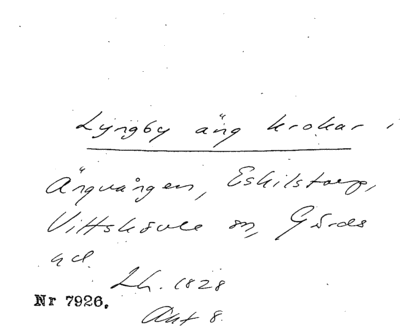 Lyngby äng krokar i
Ängvången, Eskilstorp,
Vittskövle sn, Gärds
hd.
Lh. 1828
Nr 7926.
Akt 8.